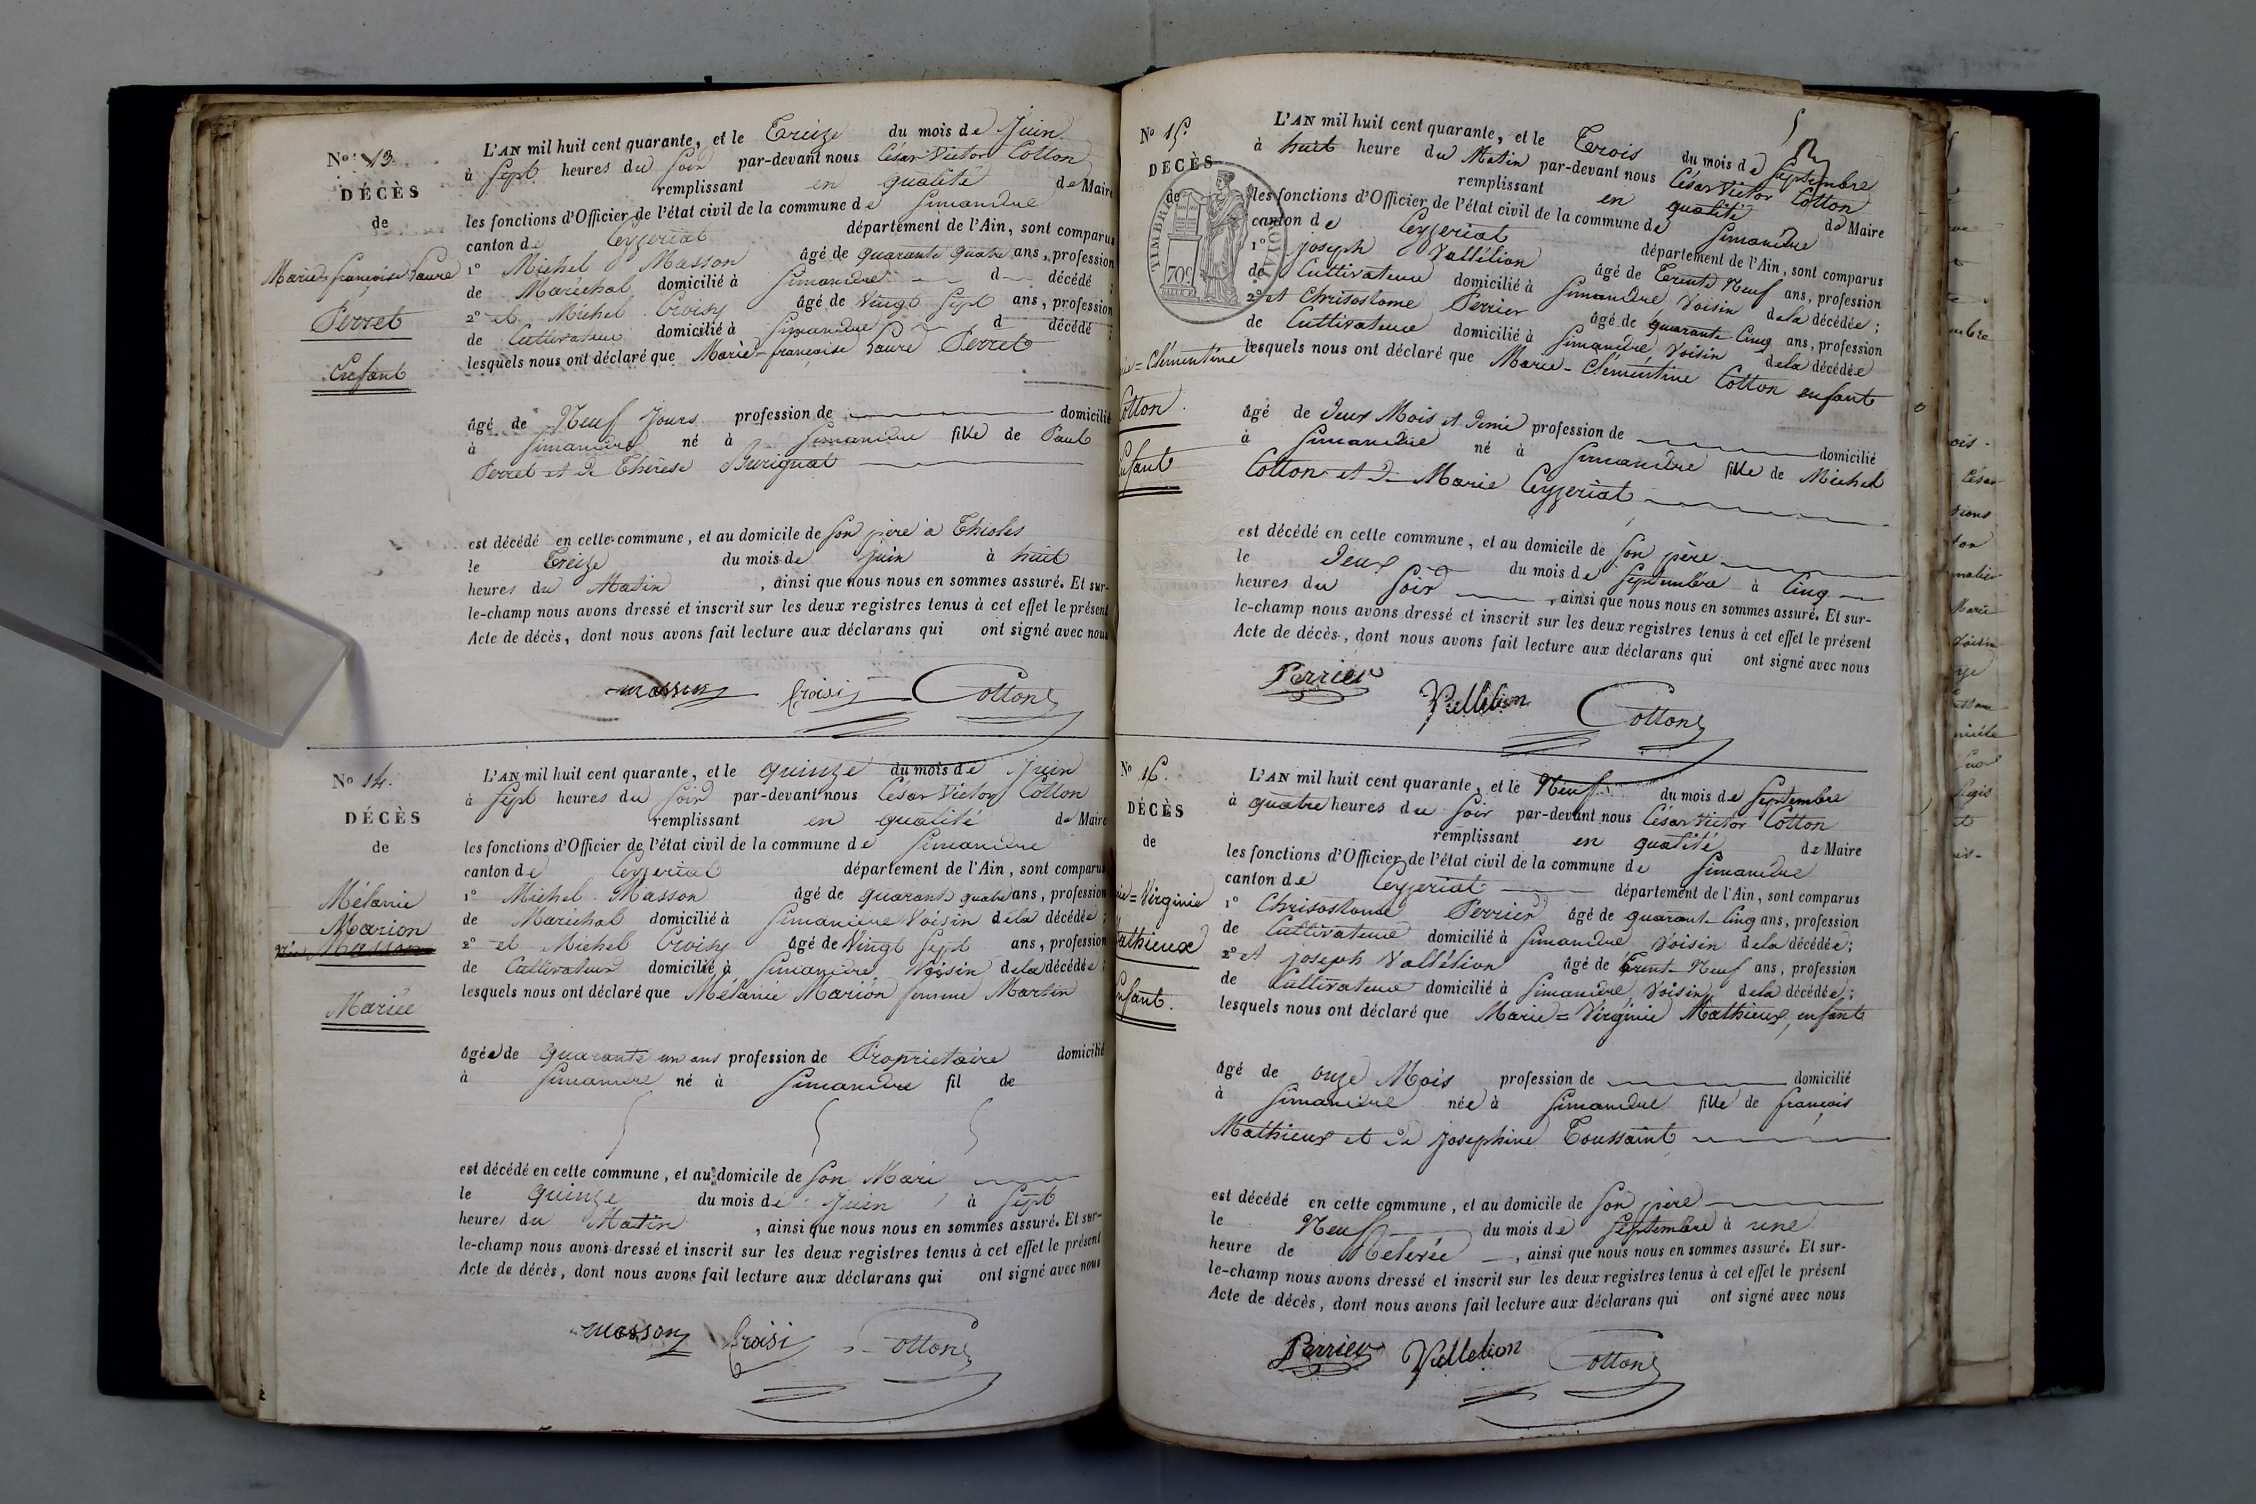 No 13.
DÉCÈS
de
Marie-françoise Laure
Perret
Enfant
L'AN mil huit cent quarante, et le Treize du mois de Juin
à Sept heures du Soir par-devant nous César Victor Cotton
remplissant en qualité de Maire
les fonctions d'Officier de l'état civil de la commune de Simandre
canton de Ceyzeriat département de l'Ain, sont comparus
1° Michel Masson âgé de quarante quatre ans, profession
de Maréchal domicilié à Simandre d décédé ;
2° et Michel Croisy âgé de Vingt Sept ans, profession
de Cultivateur domicilié à Simandre d décédé ;
lesquels nous ont déclaré que Marie-françoise Laure Perret
âgé de Neuf Jours profession de domicilié
à Simandre né à Simandre fille de Paul
Perret et de Thérèse Buriguat
est décédé en cette commune, et au domicile de Son père à Thioles
le Treize du mois de Juin à huit
heures du Matin, ainsi que nous nous en sommes assuré. Et sur-
le-champ nous avons dressé et inscrit sur les deux registres tenus à cet effet le présent
Acte de décès, dont nous avons fait lecture aux déclarans qui ont signé avec nous
masson Croisi Cotton
No 14.
DÉCÈS
de
Mélanie
Marion
Masson
Mariée
L'AN mil huit cent quarante, et le quinze du mois de Juin
à Sept heures du Soir par-devant nous César Victor Cotton
remplissant en qualité de Maire
les fonctions d'Officier de l'état civil de la commune de Simandre
canton de Ceyzeriat département de l'Ain, sont comparus
1° Michel Masson âgé de quarante quatre ans, profession
de Maréchal domicilié à Simandre Voisin de la décédée ;
2° et Michel Croisy âgé de Vingt Sept ans, profession
de Cultivateur domicilié à Simandre, Voisin de la décédée ;
lesquels nous ont déclaré que Mélanie Marion femme Martin
âgée de quarante un ans profession de Propriétaire domicilié
à Simandre né à Simandre fil de
est décédé en cette commune, et au domicile de Son Mari
le quinze du mois de Juin à Sept
heures du Matin, ainsi que nous nous en sommes assuré. Et sur-
le-champ nous avons dressé et inscrit sur les deux registres tenus à cet effet le présent
Acte de décès, dont nous avons fait lecture aux déclarans qui ont signé avec nous
masson Croisi Cotton
No 15.
DÉCÈS
de
TIMBRE ROYAL
70c.
ie=Clémentine
Cotton.
Enfant
L'AN mil huit cent quarante, et le Trois du mois de Septembre
à huit heure du Matin par-devant nous César Victor Cotton
remplissant en qualité de Maire
les fonctions d'Officier de l'état civil de la commune de Simandre
canton de Ceyzeriat département de l'Ain, sont comparus
1° Joseph Vallélion âgé de Trente Neuf ans, profession
de Cultivateur domicilié à Simandre Voisin de la décédée ;
2° et Chrisostome Perrier âgé de quarante Cinq ans, profession
de Cultivateur domicilié à Simandre, Voisin de la décédée
lesquels nous ont déclaré que Marie-Clémentine Cotton enfant
âgé de deux Mois et demi profession de domicilié
à Simandre né à Simandre fille de Michel
Cotton et de Marie Ceyzeriat
est décédé en cette commune, et au domicile de Son père
le deux du mois de Septembre à Cinq
heures du Soir, ainsi que nous nous en sommes assuré. Et sur-
le-champ nous avons dressé et inscrit sur les deux registres tenus à cet effet le présent
Acte de décès, dont nous avons fait lecture aux déclarans qui ont signé avec nous
Perrier Vallelion Cotton
No 16.
DÉCÈS
de
ie=Virginie
Mathieux
Enfant.
L'AN mil huit cent quarante, et le Neuf du mois de Septembre
à quatre heures du Soir par-devant nous César Victor Cotton
remplissant en qualité de Maire
les fonctions d'Officier de l'état civil de la commune de Simandre
canton de Ceyzeriat département de l'Ain, sont comparus
1° Chrisostome Perrier âgé de quarante Cinq ans, profession
de Cultivateur domicilié à Simandre Voisin de la décédée ;
2° et Joseph Vallélion âgé de Trente Neuf ans, profession
de Cultivateur domicilié à Simandre Voisin de la décédée ;
lesquels nous ont déclaré que Marie=Virginie Mathieux, enfant
âgé de onze Mois profession de domicilié
à Simandre née à Simandre fille de françois
Mathieux et de Josephine Toussaint
est décédé en cette commune, et au domicile de Son père
le Neuf du mois de Septembre à une
heure de Relevée, ainsi que nous nous en sommes assuré. Et sur-
le-champ nous avons dressé et inscrit sur les deux registres tenus à cet effet le présent
Acte de décès, dont nous avons fait lecture aux déclarans qui ont signé avec nous
Perrier Vallelion Cotton